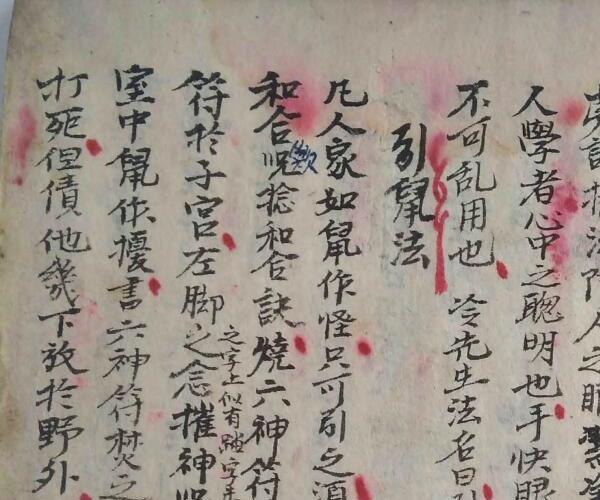 法
人學者心中之聰明也手快眼
不可乱用也 冷先生法名曰
引鼠法
凡人家如鼠作怪只可引之酒
和合呪捻和合訣燒六神符
符於子宮左脚之念摧神呪
之字上似有踏字
室中鼠作擾書六神符焚之
打死但債他幾下放於野外